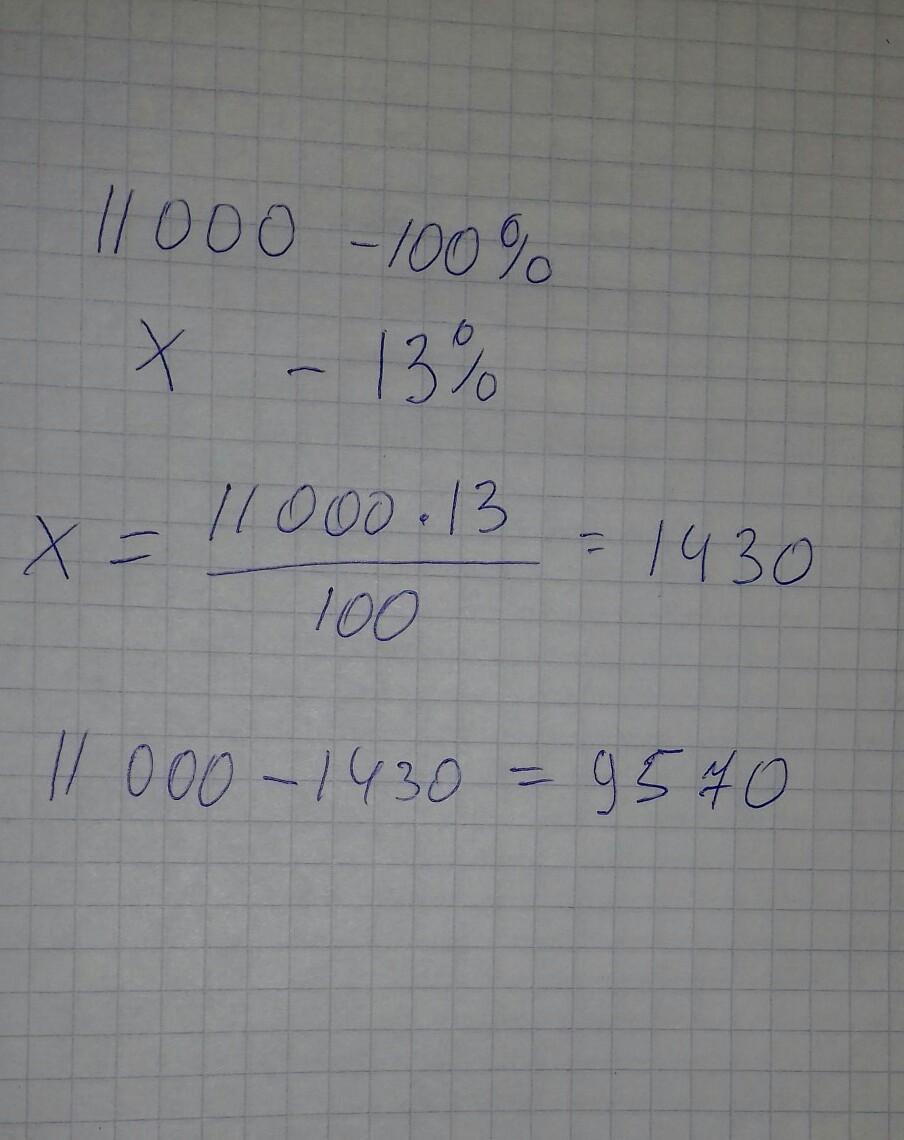 11000 - 100%
x - 13%
x = 11000 · 13 / 100 = 1430
11 000 - 1430 = 9570